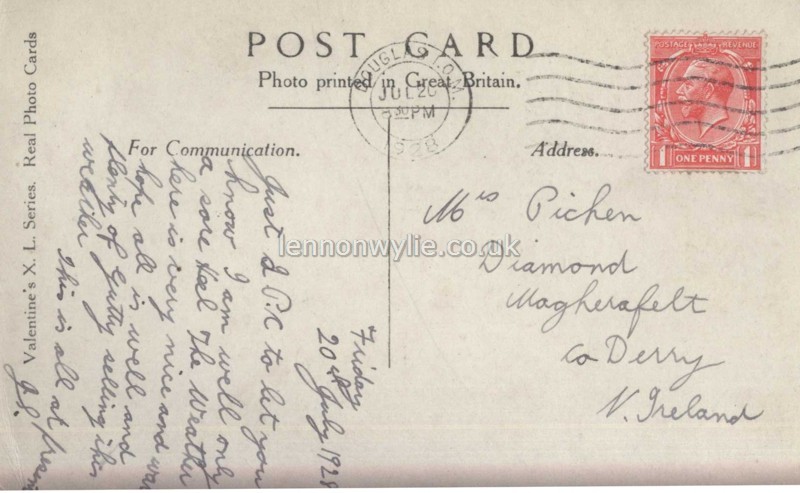 POST CARD
Photo printed in Great Britain.
For Communication.
Address.
Valentine's X. L. Series. Real Photo Cards
DOUGLAS I.O.M.
JUL 20
30 PM
1928
POSTAGE REVENUE
1 ONE PENNY 1
Friday
20th July 1928
Just a P.C to let you
know I am well only
a sore Heel The Weather
here is very nice and war
hope all is well and
plenty of selling this
weather
This is all at presen
Mrs Picken
Diamond
Magherafelt
Co Derry
N. Ireland
lennonwylie.co.uk